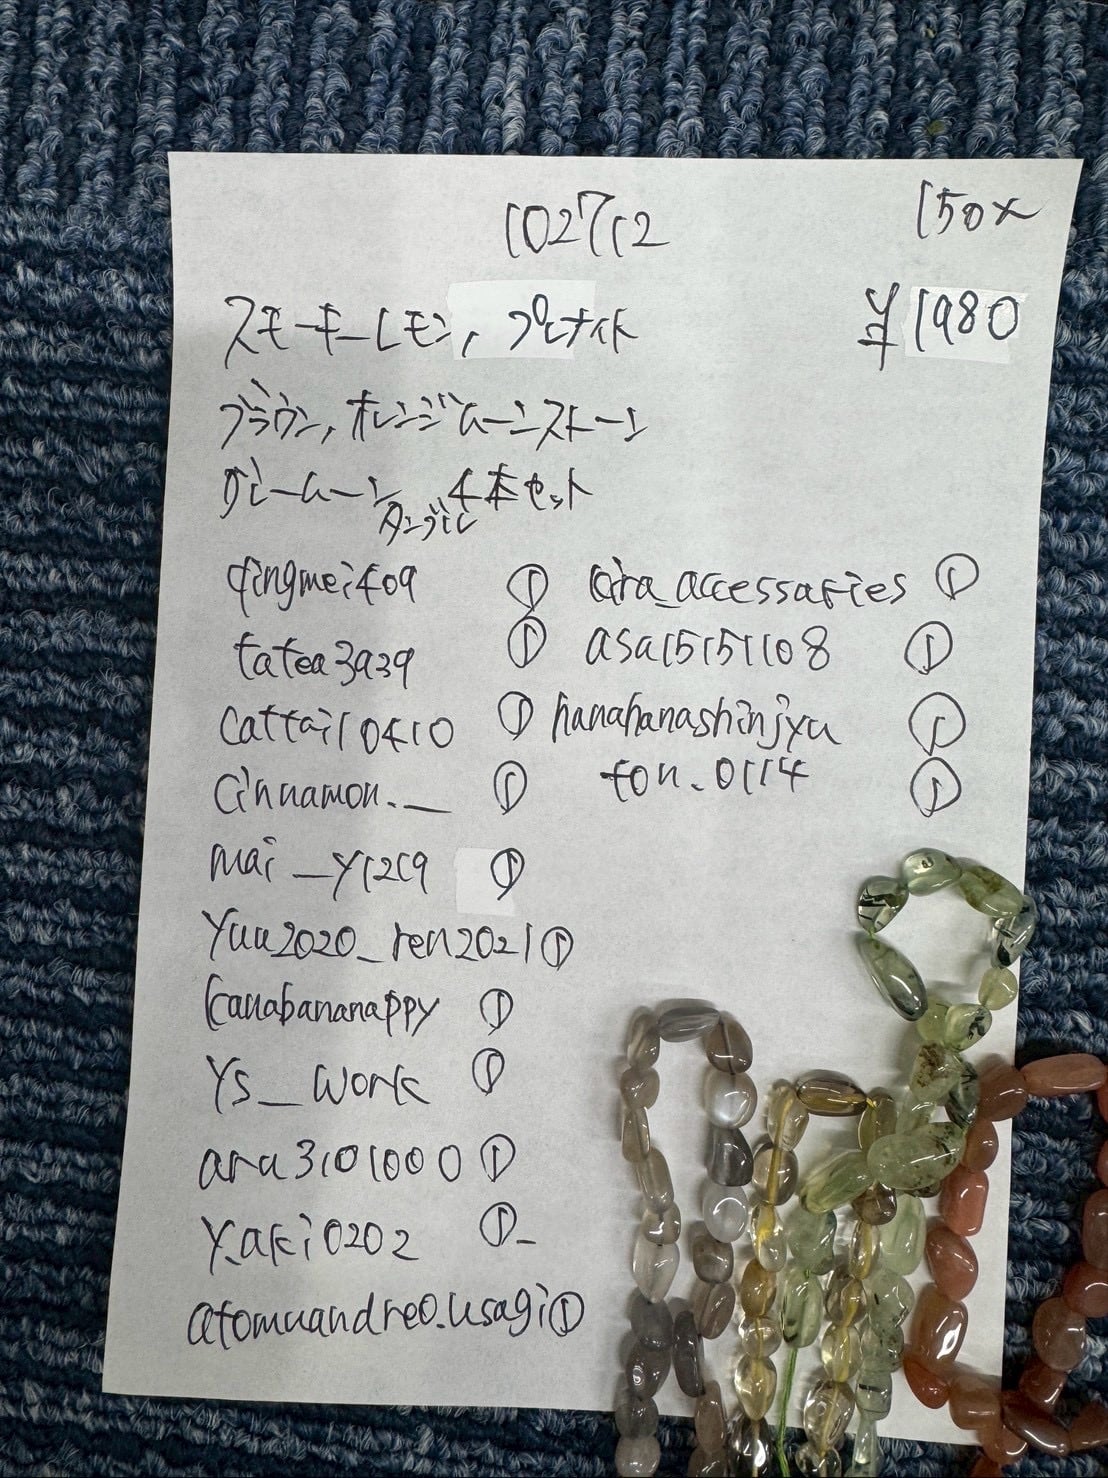 102712
150×
スモーキーレモン, プレナイト
¥1980
ブラウン, オレンジムーンストーン
グレームーン 4本セット
タンブル
qingmei409 ①
kira_accessaries ①
tatea3939 ①
asa15151108 ①
cattail0410 ①
hanahanashinjyu ①
cinnamon.__ ①
ton.0114 ①
mai_y1219 ①
Yuu2020_ren2021 ①
kanabananappy ①
Ys__work ①
ara3101000 ①
Y.aki0202 ①
atomuandreo.usagi ①